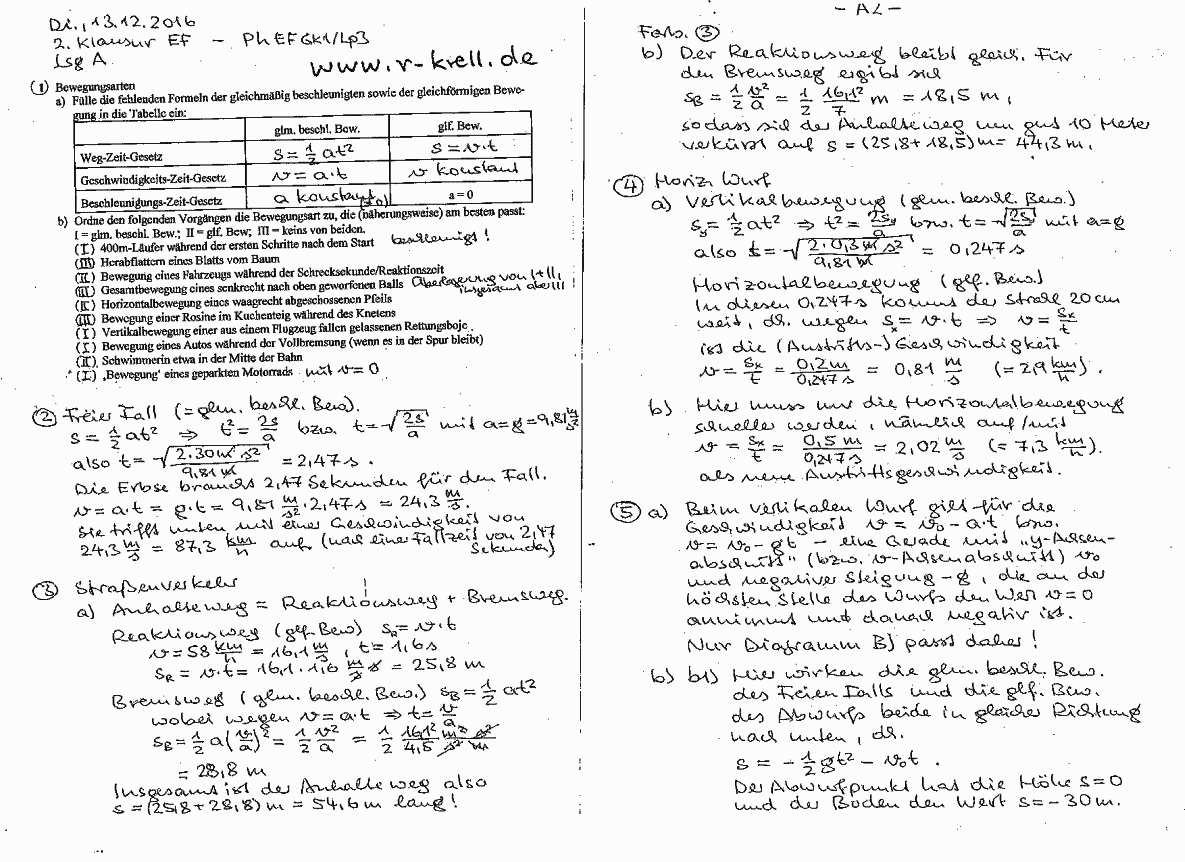 Di., 13.12.2016
2. Klausur EF – Ph EF Gk1/Lp3
Lsg A
www.r-krell.de
(1) Bewegungsarten
a) Fülle die fehlenden Formeln der gleichmäßig beschleunigten sowie der gleichförmigen Bewe-
gung in die Tabelle ein:
glm. beschl. Bew. glf. Bew.
Weg-Zeit-Gesetz s = ½ at² s = v·t
Geschwindigkeits-Zeit-Gesetz v = a·t v konstant
Beschleunigungs-Zeit-Gesetz a konstant (≠0) a = 0
b) Ordne den folgenden Vorgängen die Bewegungsart zu, die (näherungsweise) am besten passt:
I = glm. beschl. Bew.; II = glf. Bew; III = keins von beiden.
(I) 400m-Läufer während der ersten Schritte nach dem Start beschleunigt!
(III) Herabflattern eines Blatts vom Baum
(II) Bewegung eines Fahrzeugs während der Schrecksekunde/Reaktionszeit
(III) Gesamtbewegung eines senkrecht nach oben geworfenen Balls Überlagerung von I+II, insgesamt aber III!
(II) Horizontalbewegung eines waagrecht abgeschossenen Pfeils
(III) Bewegung einer Rosine im Kuchenteig während des Knetens
(I) Vertikalbewegung einer aus einem Flugzeug fallen gelassenen Rettungsboje
(I) Bewegung eines Autos während der Vollbremsung (wenn es in der Spur bleibt)
(II) Schwimmerin etwa in der Mitte der Bahn
(I) ‚Bewegung‘ eines geparkten Motorrads mit v=0
(2) Freier Fall (= glm. beschl. Bew).
s = ½ at² ⇒ t² = 2s/a bzw. t = √(2s/a) mit a=g=9,81 m/s²
also t = √(2·30 m s²/9,81 m) = 2,47 s.
Die Erbse braucht 2,47 Sekunden für den Fall.
v = a·t = g·t = 9,81 m/s² · 2,47 s = 24,3 m/s.
Sie trifft unten mit einer Geschwindigkeit von
24,3 m/s = 87,3 km/h auf (nach einer Fallzeit von 2,47
Sekunden)
(3) Straßenverkehr
a) Anhalteweg = Reaktionsweg + Bremsweg.
Reaktionsweg (glf. Bew) s_R = v·t
v = 58 km/h = 16,1 m/s, t = 1,6 s
s_R = v·t = 16,1 · 1,6 m/s s = 25,8 m
Bremsweg (glm. beschl. Bew.) s_B = ½ at²
wobei wegen v = a·t ⇒ t = v/a
s_B = ½ a(v/a)² = ½ v²/a = ½ 16,1²/4,5 m² s²/s² m
= 28,8 m
Insgesamt ist der Anhalteweg also
s = (25,8 + 28,8) m = 54,6 m lang!
– A2 –
Forts. (3)
b) Der Reaktionsweg bleibt gleich. Für
den Bremsweg ergibt sich
s_B = ½ v²/a = ½ 16,1²/7 m = 18,5 m,
sodass sich der Anhalteweg um gut 10 Meter
verkürzt auf s = (25,8 + 18,5) m = 44,3 m.
(4) Horiz. Wurf
a) Vertikalbewegung (glm. beschl. Bew.)
s_y = ½ at² ⇒ t² = 2s_y/a bzw. t = √(2s_y/a) mit a=g
also t = √(2·0,3 m s²/9,81 m) = 0,247 s
Horizontalbewegung (glf. Bew.)
In diesen 0,247 s kommt der Strahl 20 cm
weit, dh. wegen s_x = v·t ⇒ v = s_x/t
ist die (Austritts-) Geschwindigkeit
v = s_x/t = 0,2 m/0,247 s = 0,81 m/s (= 2,9 km/h).
b) Hier muss nur die Horizontalbewegung
schneller werden, nämlich auf/mit
v = s_x/t = 0,5 m/0,247 s = 2,02 m/s (= 7,3 km/h).
als neue Austrittsgeschwindigkeit.
(5) a) Beim vertikalen Wurf gilt für die
Geschwindigkeit v = v₀ – a·t bzw.
v = v₀ – gt – eine Gerade mit "y-Achsen-
abschnitt" (bzw. v-Achsenabschnitt) v₀
und negativer Steigung –g, die an der
höchsten Stelle des Wurfs den Wert v=0
annimmt und danach negativ ist.
Nur Diagramm B) passt daher!
b) b1) Hier wirken die glm. beschl. Bew.
des Freien Falls und die glf. Bew.
des Abwurfs beide in gleicher Richtung
nach unten, dh.
s = – ½ gt² – v₀t.
Der Abwurfpunkt hat die Höhe s=0
und der Boden den Wert s=–30 m.